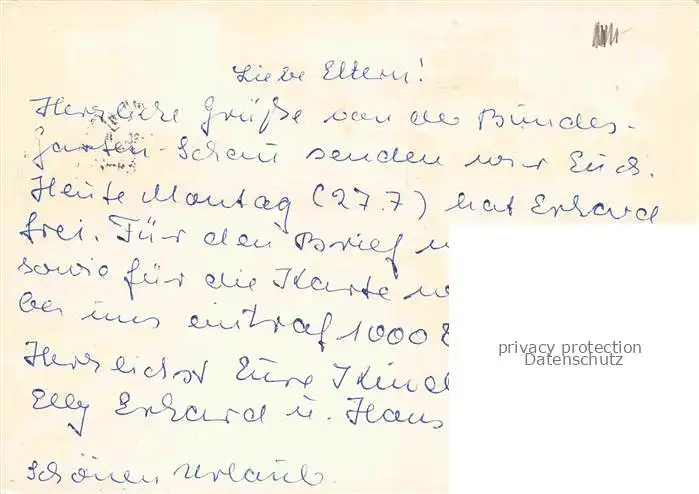 Liebe Eltern!
Herzliche Grüße von der Bundes-
garten-Schau senden wir Euch.
Heute Montag (27.7) hat Erhard
frei. Für den Brief
sowie für die Karte
bei uns eintraf 1000
privacy protection
Datenschutz
Herzlichst Eure
Elly Erhard u. Hans
Schönen Urlaub